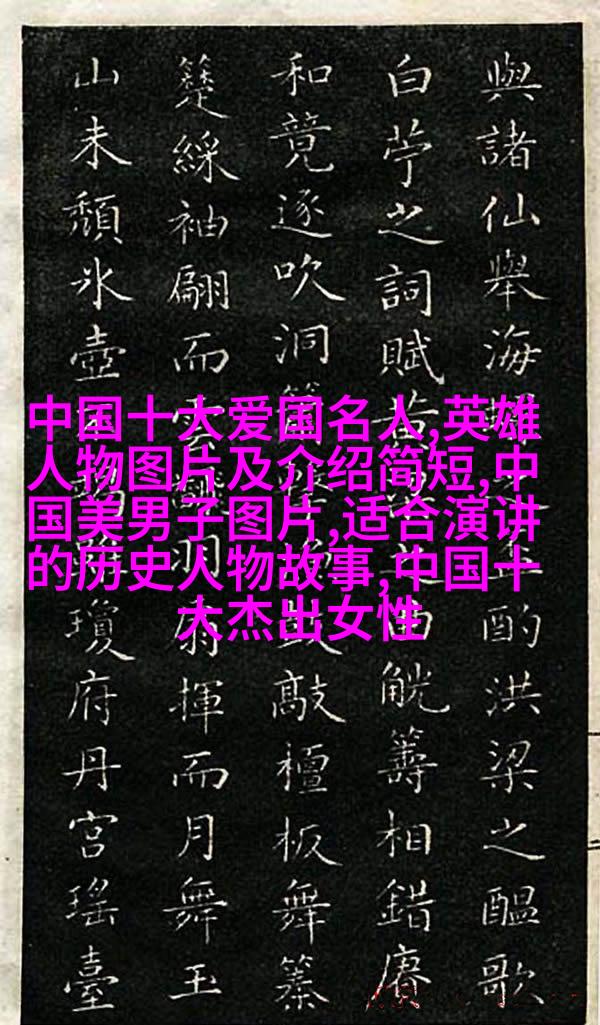 中国十大爱国名人,英雄
人物图片及介绍简短,中
国美男子图片,适合演讲
的历史人物故事,中国十
大杰出女性
與諸仙舉海酌洪梁之醞歌
白苧之詞賦黃之曲觥籌相錯賡
和競逐吹洞簫鼓敲檀板舞
綵袖翩而雲羽扇揮而月舞玉
山未頹氷壺瓊府丹宮瑤臺